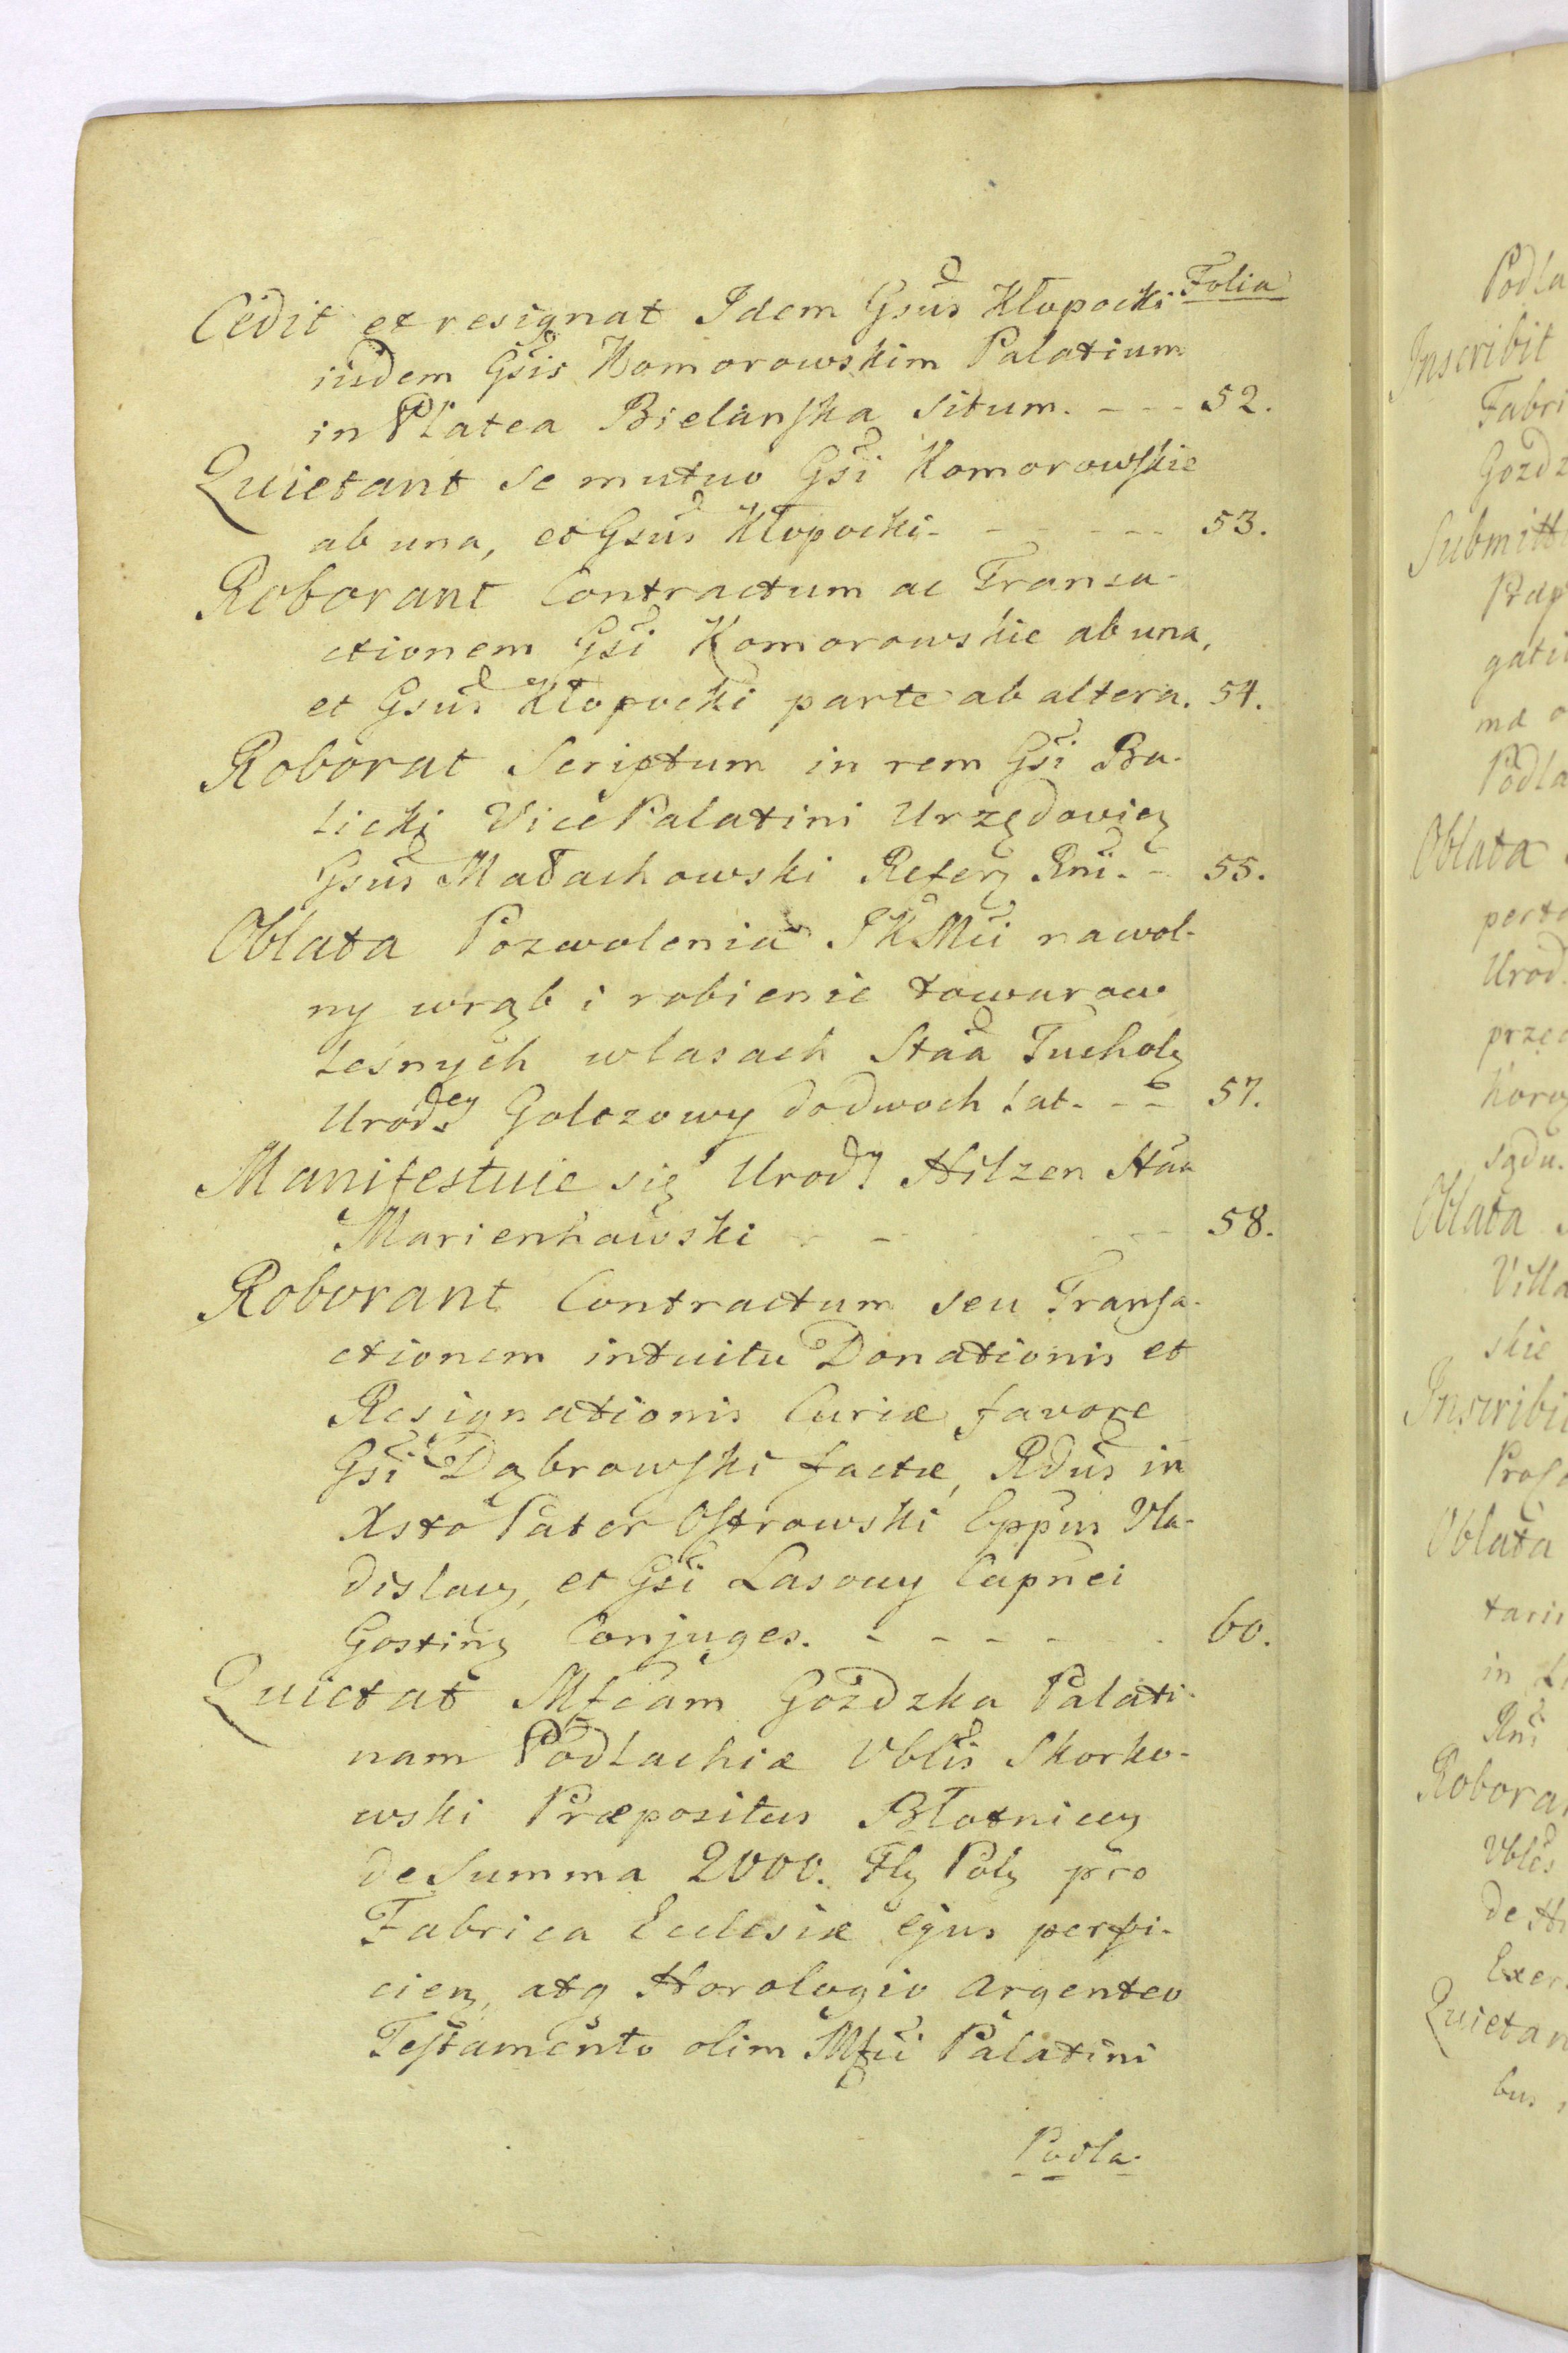 Folia
Cedit et resignat Idem Gsus Kłopocki
iisdem Gsis Komorowskim Palatium
in Platea Bielanska situm. - - - 52.
Quietant se mutuo Gsi Komorowskie
ab una, et Gsus Kłopocki - - - - - 53.
Roborant Contractum ac Transa-
ctionem Gsi Komorowskie ab una,
et Gsus Kłopocki parte ab altera. 54.
Roborat Scriptum in rem Gsi Ba-
licki Vice Palatini Urzędovien
Gsus Małachowski Refer Rni. - 55.
Oblata Pozwolenia JKMci na wol-
ny wrąb i robienie towarow
Leśnych w lasach Staa Tuchol
Urodey Golczowy do dwoch Lat. - - 57.
Manifestuie się Urody Hilzen Staa
Marienhawski - - - - 58.
Roborant Contractum seu Transa-
ctionem intuitu Donationis et
Resignationis Curiæ favore
Gsi Dąbrowski factæ, Rdus in
Xsto Pater Ostrowski Eppus Vla-
dislav, et Gsi Lasowy Capnei
Gostin Conjuges. - - - - - 60.
Quietat Mfcam Gozdzka Palati-
nam Podlachiæ Vblis Skorko-
wski Præpositus Błotnicen
de Summa 2000. Fl Pol pro
Fabrica Eclesiæ ejus perfi-
cien, atq Horologio Argenteo
Testamento olim Mfci Palatini
Podla-
Podla
Inscribit
Fabri
Gozdz
Submitt
Præp
gati
mæ
Podla
Oblata
Urod.
sądu.
Oblata
Villa
skie
Inscribi
Oblata
in
Rni
Robora
Vblis
de
Exer
Quietan
bus